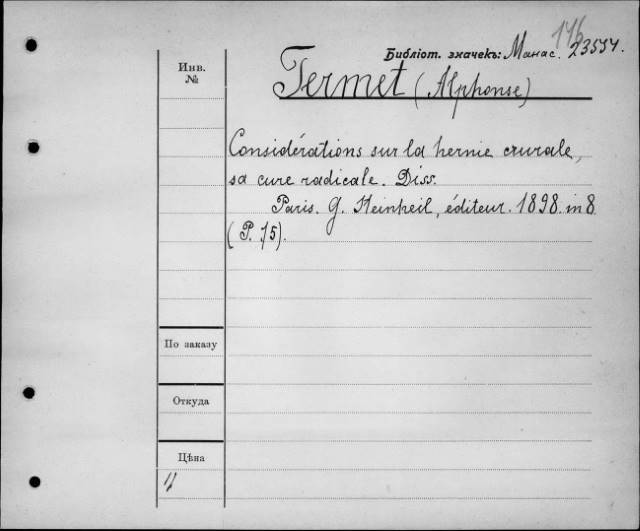 146
Библіот. значекъ: Манас. 23554.
Инв.
№
Fermet (Alphonse)
Considérations sur la hernie crurale,
sa cure radicale. Diss.
Paris. G. Steinheil, éditeur. 1898. in 8
(P. 75).
По заказу
Откуда
Цѣна